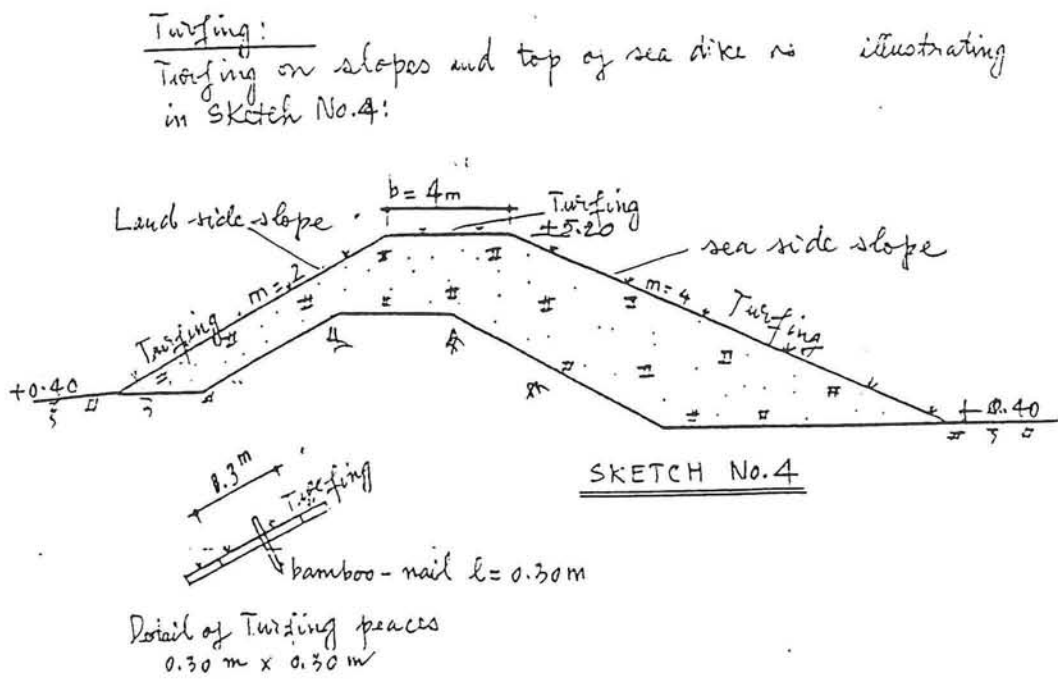 Turfing:
Turfing on slopes and top of sea dike is illustrating
in Sketch No.4:
b= 4m
Land side slope
Turfing
+5.20
sea side slope
m=2
m=4
Turfing
Turfing
+0.40
+0.40
SKETCH No.4
0.3m
Turfing
bamboo-nail l= 0.30m
Detail of Turfing peaces
0.30 m x 0.30 m